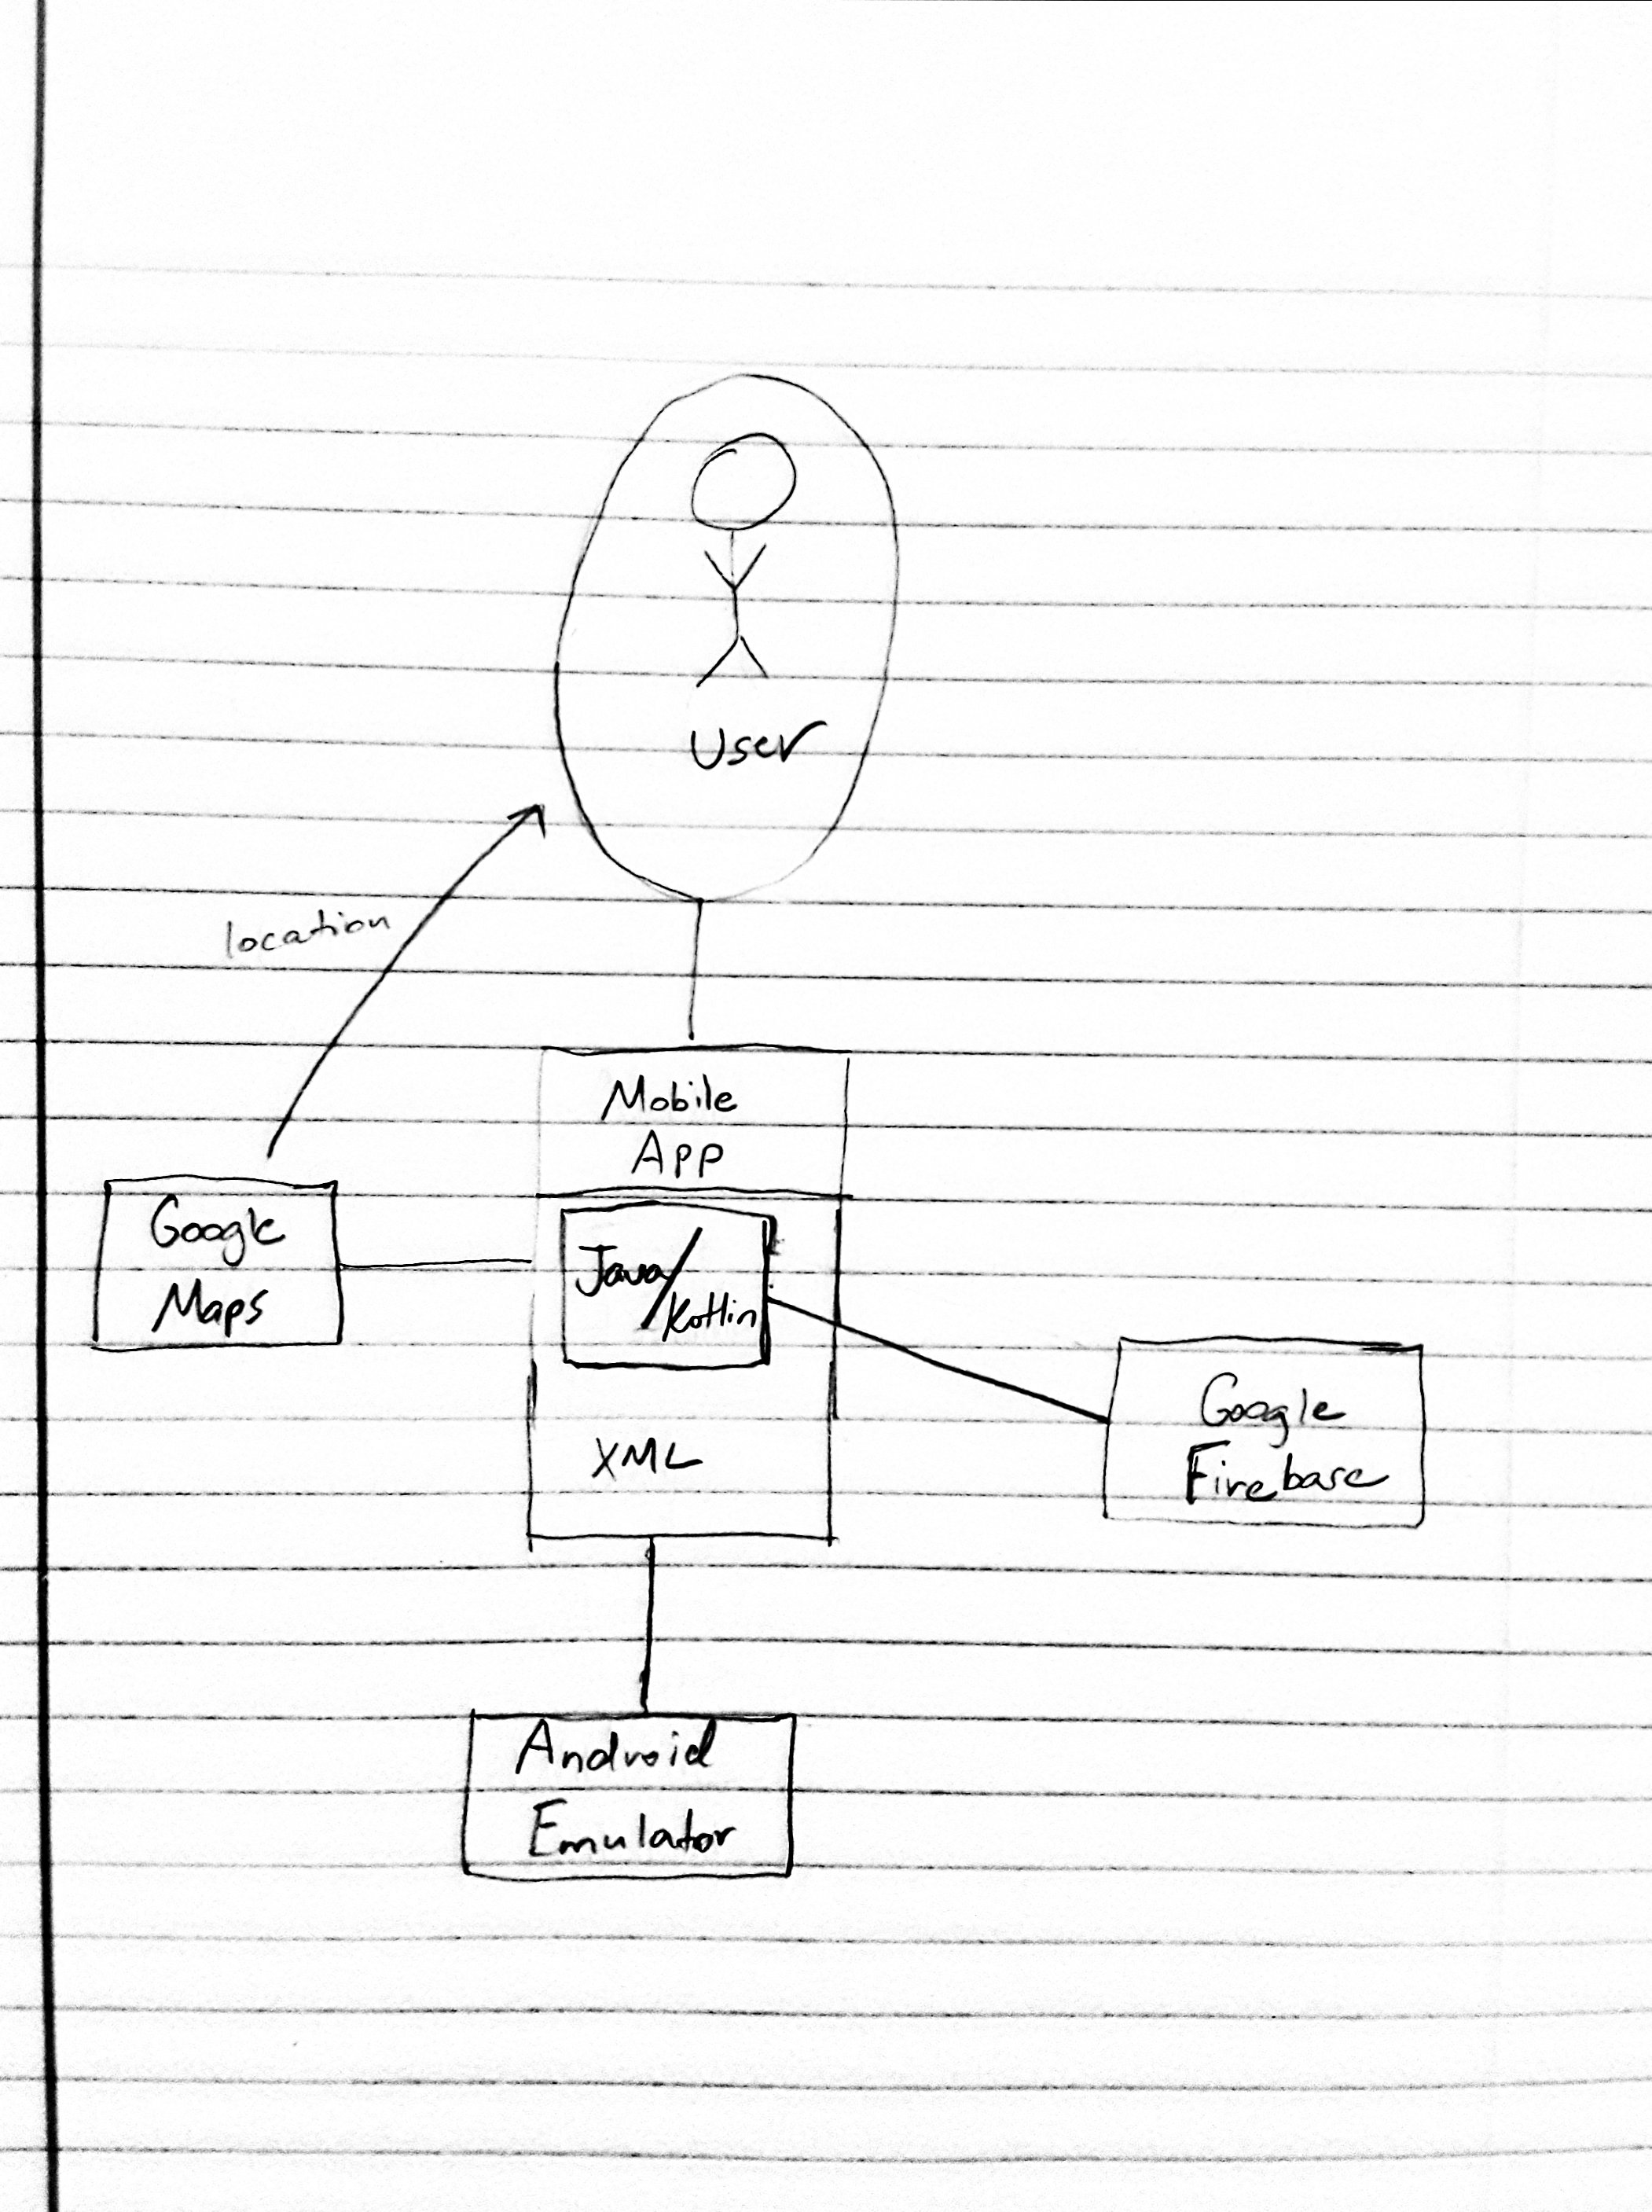 User
location
Mobile
App
Google
Maps
Java/
Kotlin
Google
Firebase
XML
Android
Emulator